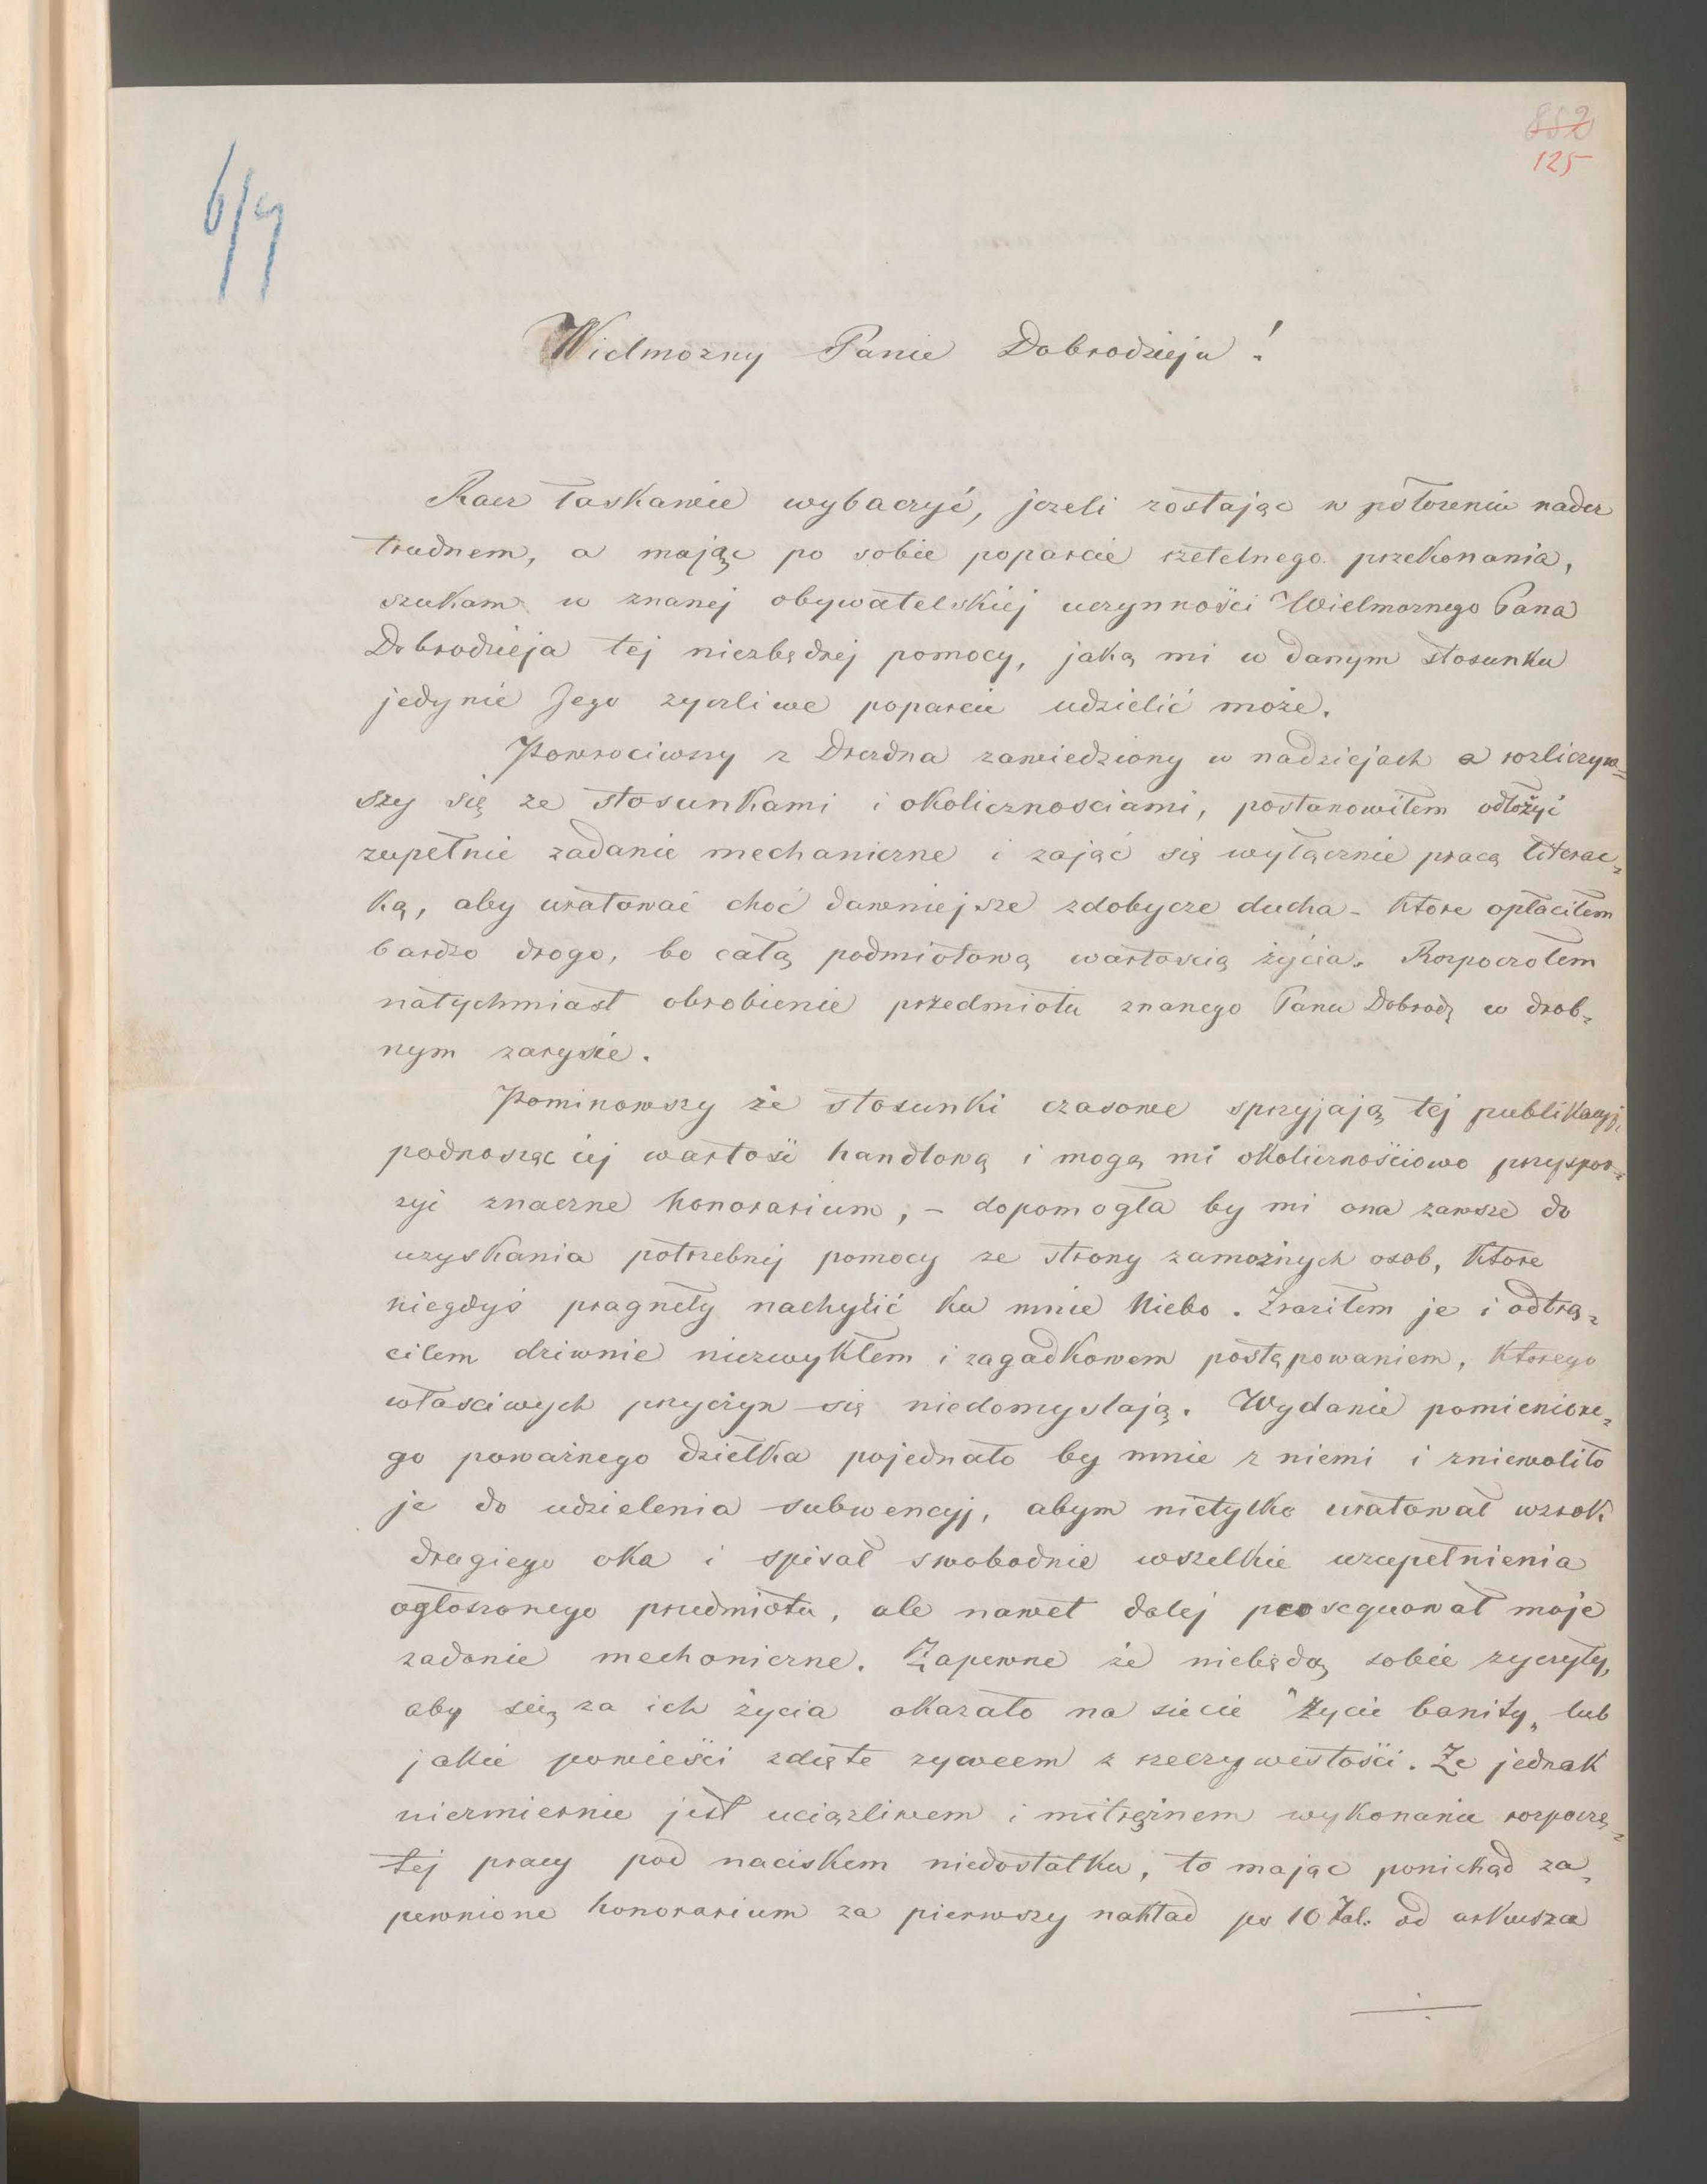 852
125
6/9
Wielmożny Panie Dobrodzieju!
Racz łaskawie wybaczyć, jeżeli zostając w położeniu nader
trudnem, a mając po sobie poparcie rzetelnego przekonania,
szukam w znanej obywatelskiej uczynności Wielmożnego Pana
Dobrodzieja tej niezbędnej pomocy, jaką mi w danym stosunku
jedynie Jego życzliwe poparcie udzielić może.
Powrociwszy z Drezdna zawiedziony w nadziejach a rozliczyw=
szy się ze stosunkami i okolicznosciami, postanowiłem odłożyć
zupełnie zadanie mechaniczne i zająć się wyłącznie pracą literac=
ką, aby uratować choć dawniejsze zdobycze ducha - ktore opłaciłem
bardzo drogo, bo całą podmiotową wartoscią życia. Rozpocząłem
natychmiast obrobienie przedmiotu znanego Panu Dobrodz w drob=
nym zarysie.
Pominowszy że stosunki czasowe sprzyjają tej publikacyj,
podnosząc jej wartość handlową i mogą mi okolicznościowo przyspor=
zyć znaczne honorarium, - dopomogła by mi ona zawsze do
uzyskania potrzebnej pomocy ze strony zamożnych osob, ktore
niegdyś pragnęły nachylić ku mnie Niebo. Zraziłem je i odtrą=
ciłem dziwnie niezwykłem i zagadkowem postępowaniem, ktorego
własciwych przyczyn się niedomyslają. Wydanie pomienione=
go poważnego dziełka pojednało by mnie z niemi i zniewoliło
je do udzielenia subwencyj, abym nietylko uratował wzrok
drugiego oka i spisał swobodnie wszelkie uzupełnienia
ogłoszonego przedmiotu, ale nawet dalej prosequował moje
zadanie mechaniczne. Zapewne że niebędą sobie życzyły,
aby się za ich życia okazało na swiecie "Życie banity„ lub
jakie powieści zdięte żywcem z rzeczywistości. Że jednak
niezmiernie jest uciążliwem i mitrężnem wykonanie rozpoczę=
tej pracy pod naciskem niedostatku, to mając poniekąd za=
pewnione honorarium za pierwszy nakład po 10 Tal. od arkusza